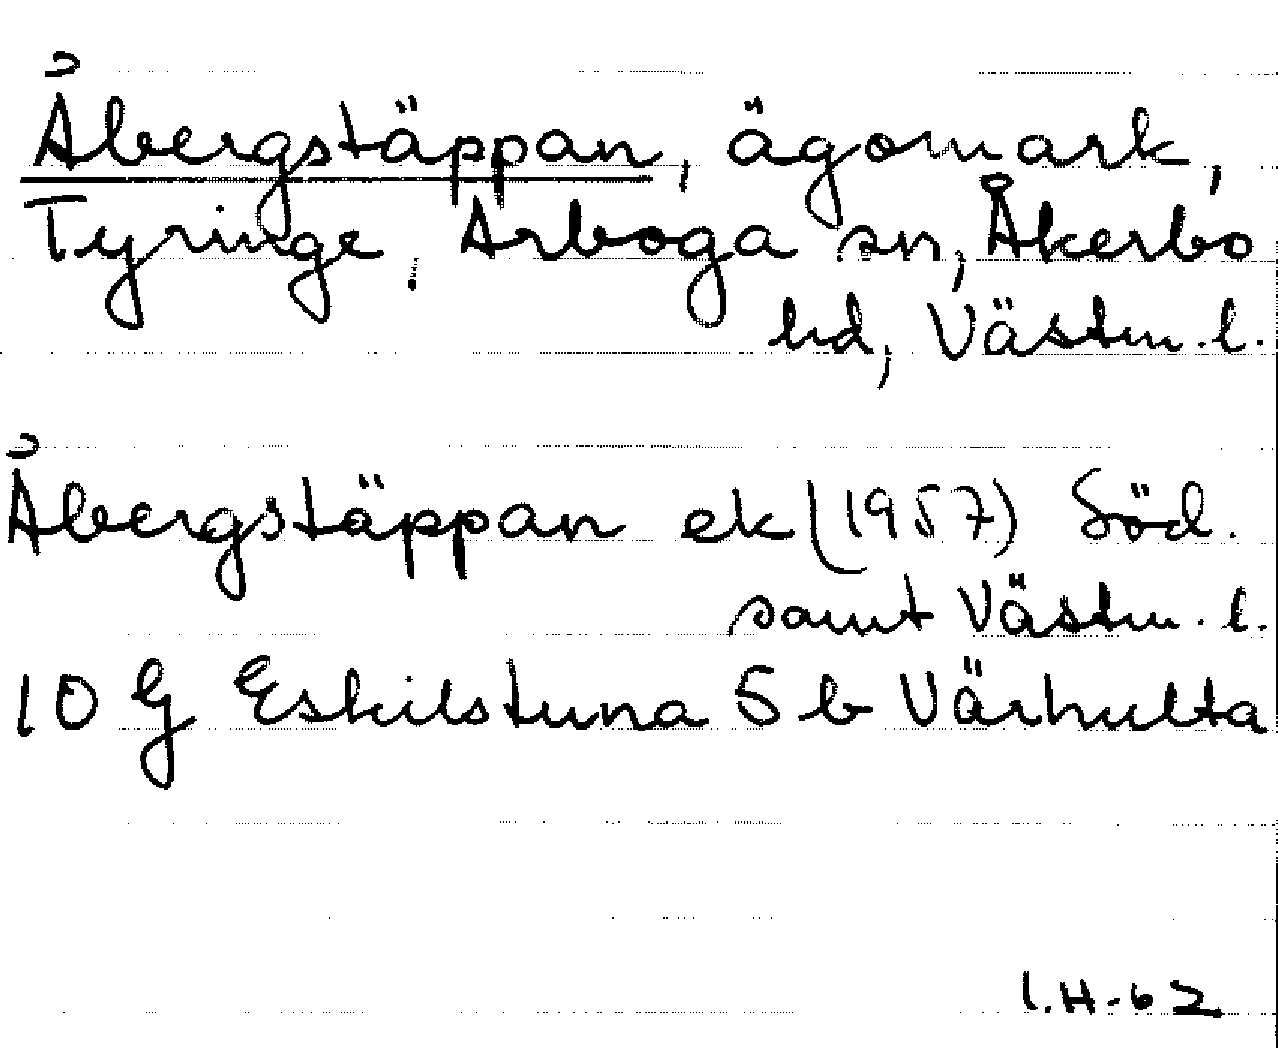 Åbergstäppan, ägomark,
Tyringe, Arboga sn, Åkerbo
hd, Västm.l.
Åbergstäppan ek (1957) Söd.
samt Västm.l.
10 G Eskilstuna 5 b Värhulta
I.H.62